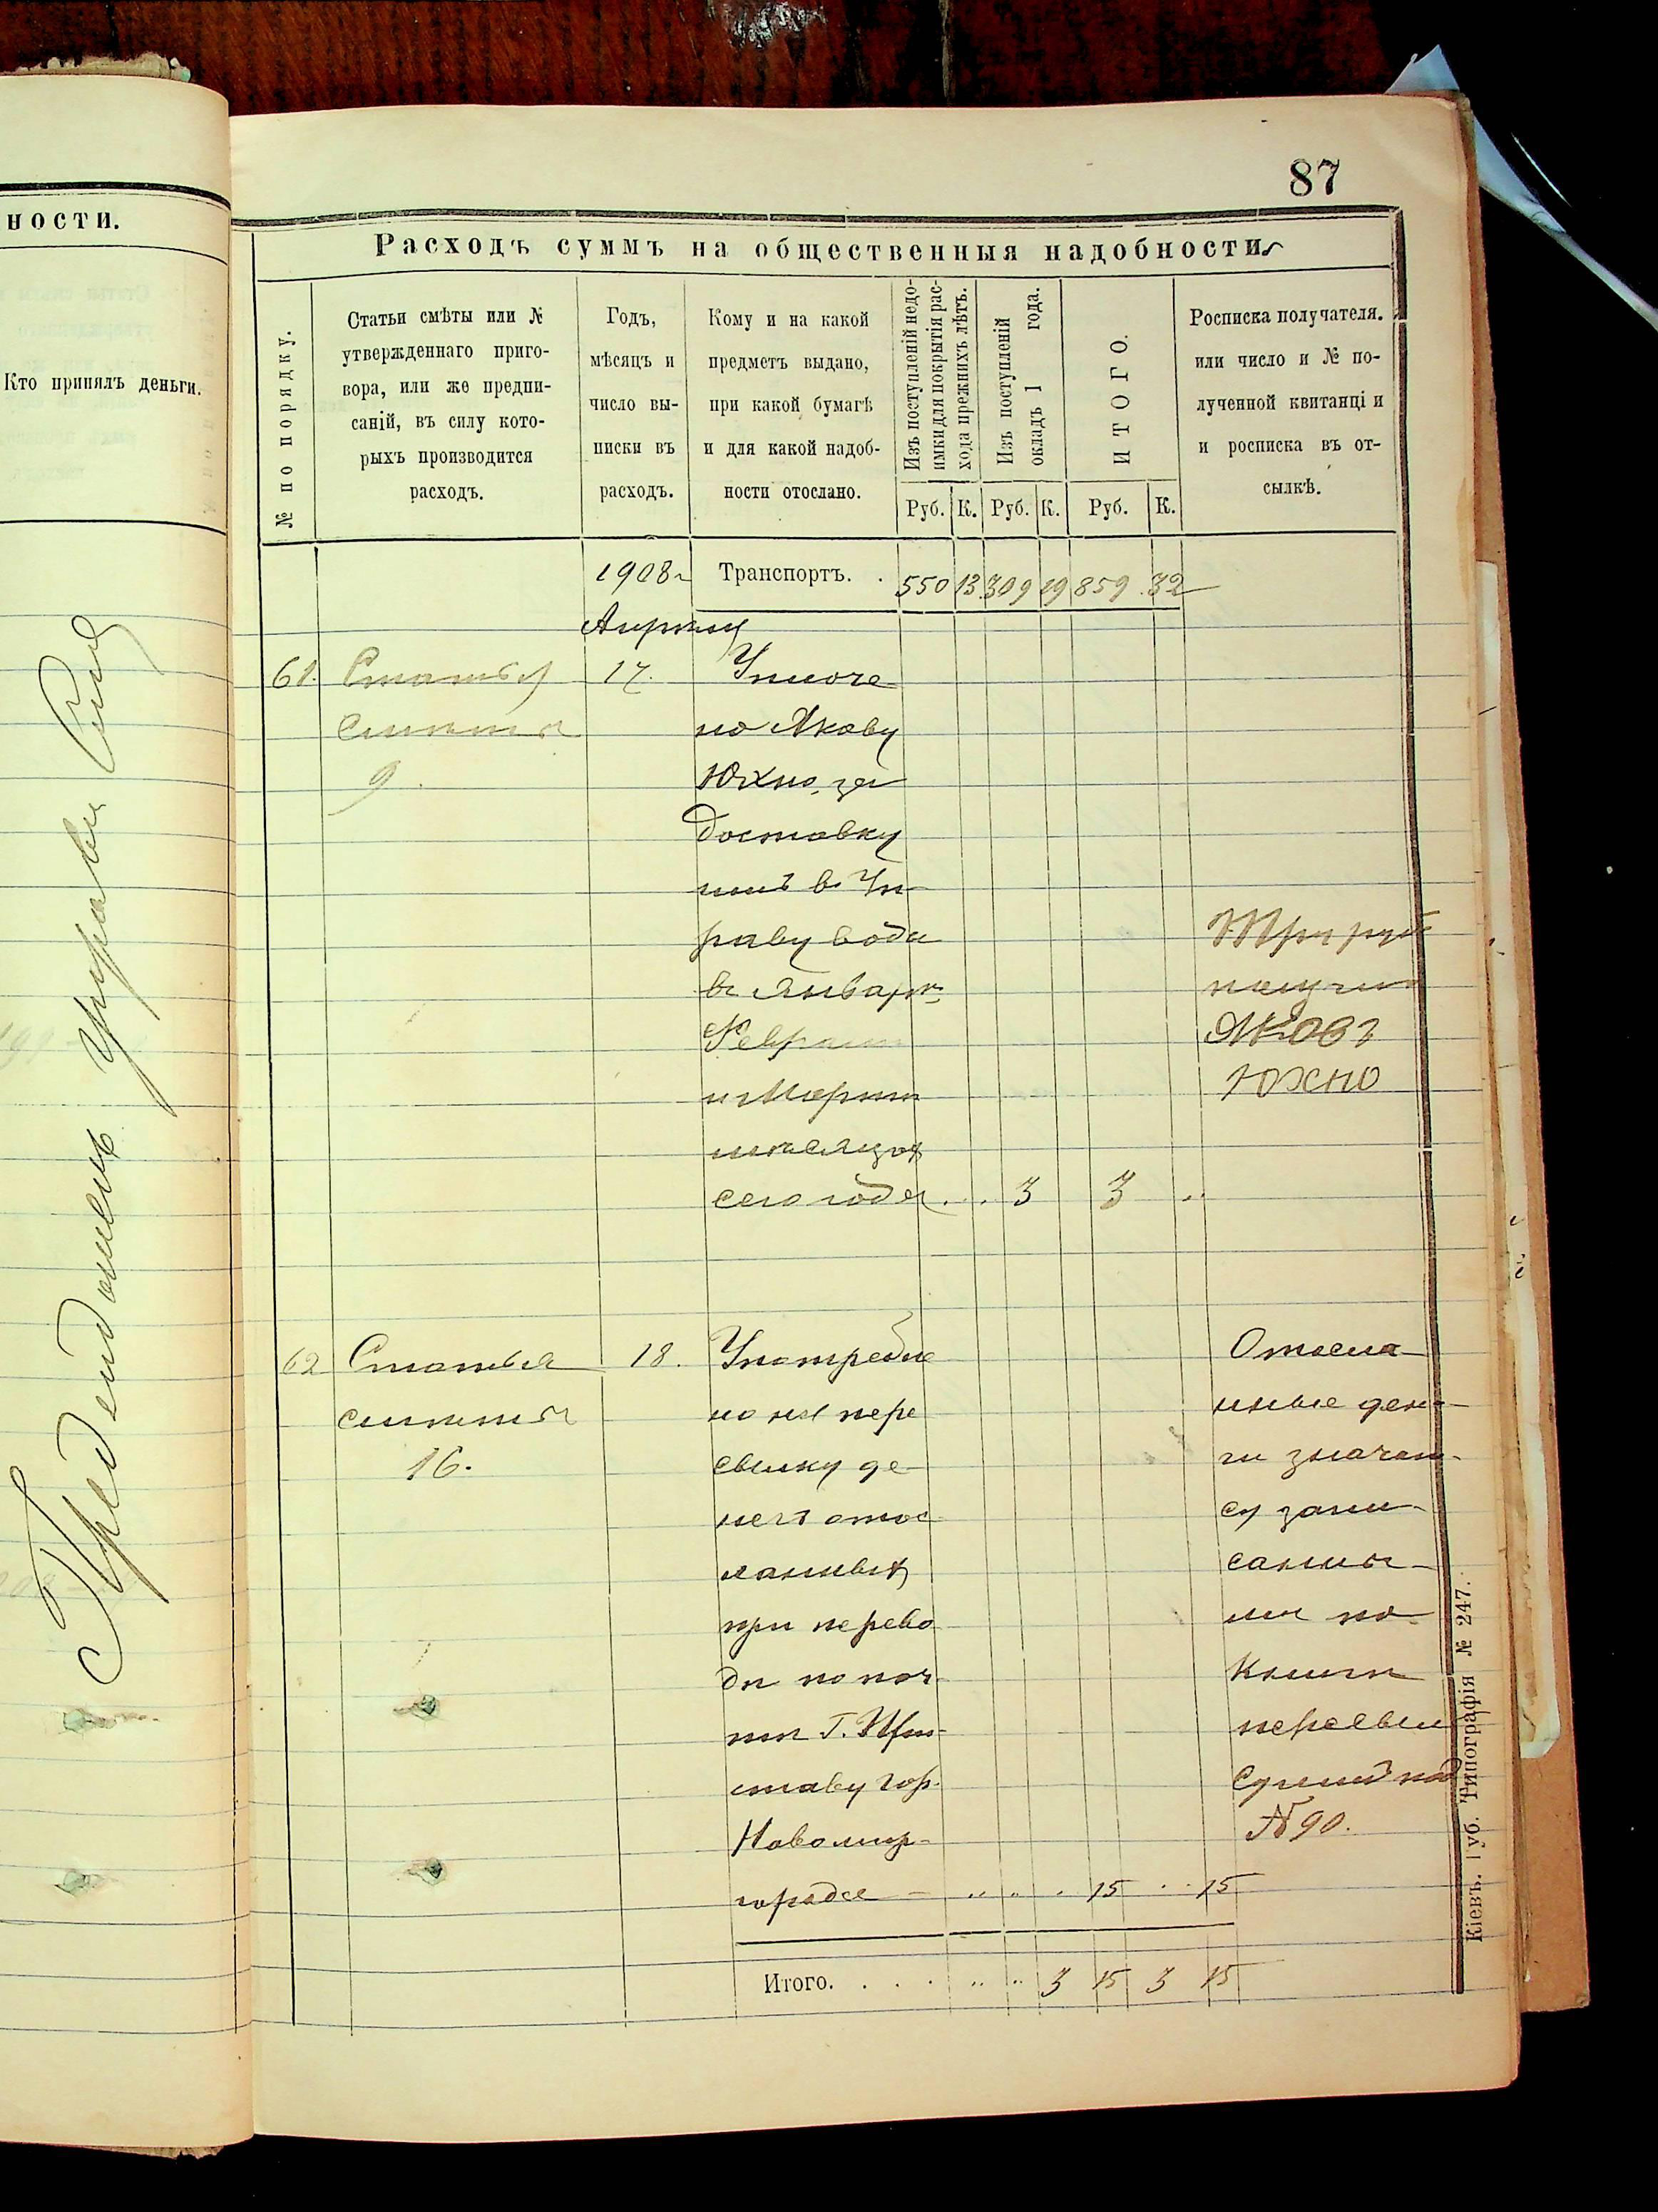 ности.
Кто принялъ деньги.
87
Расходъ суммъ на общественныя надобности
№ по порядку.
Статьи смѣты или №
утвержденнаго приго-
вора, или же предпи-
саній, въ силу кото-
рыхъ производится
расходъ.
Годъ,
мѣсяцъ и
число вы-
писки въ
расходъ.
Кому и на какой
предметъ выдано,
при какой бумагѣ
и для какой надоб-
ности отослано.
Изъ поступленій недо-
имки для покрытія рас-
хода прежнихъ лѣтъ.
Изъ поступленій
окладъ 1 года.
ИТОГО.
Росписка получателя.
или число и № по-
лученной квитанці и
и росписка въ от-
сылкѣ.
Руб. К. Руб. К. Руб. К.
1908 г Транспортъ. . 550 13 309 19 859 32
Апрѣля
61. Статья 17. Уплоче
смѣты но Якову
9. Юхно, за
доставку
имъ в Уп
раву воды
в Январѣ,
Февралѣ
и Мартѣ
мѣсяцах
сего года . . . 3 3 ..
Три руб
получил
Яковъ
Юхно
62 Статья 18. Употребле
смѣты но на пере
16. сылку де
негъ отос
ланных
при перево
дѣ по поч
тѣ Г. При
ставу гор.
Новомир-
городсе - .. .. . 15 . . 15
Отосла
нные день
ги значат
ся запи
санны
ми по
Книги
пересыл
под
№ 90.
Итого. . . . .. .. 3 15 3 15
Кіевъ. Губ. Типографія № 247.